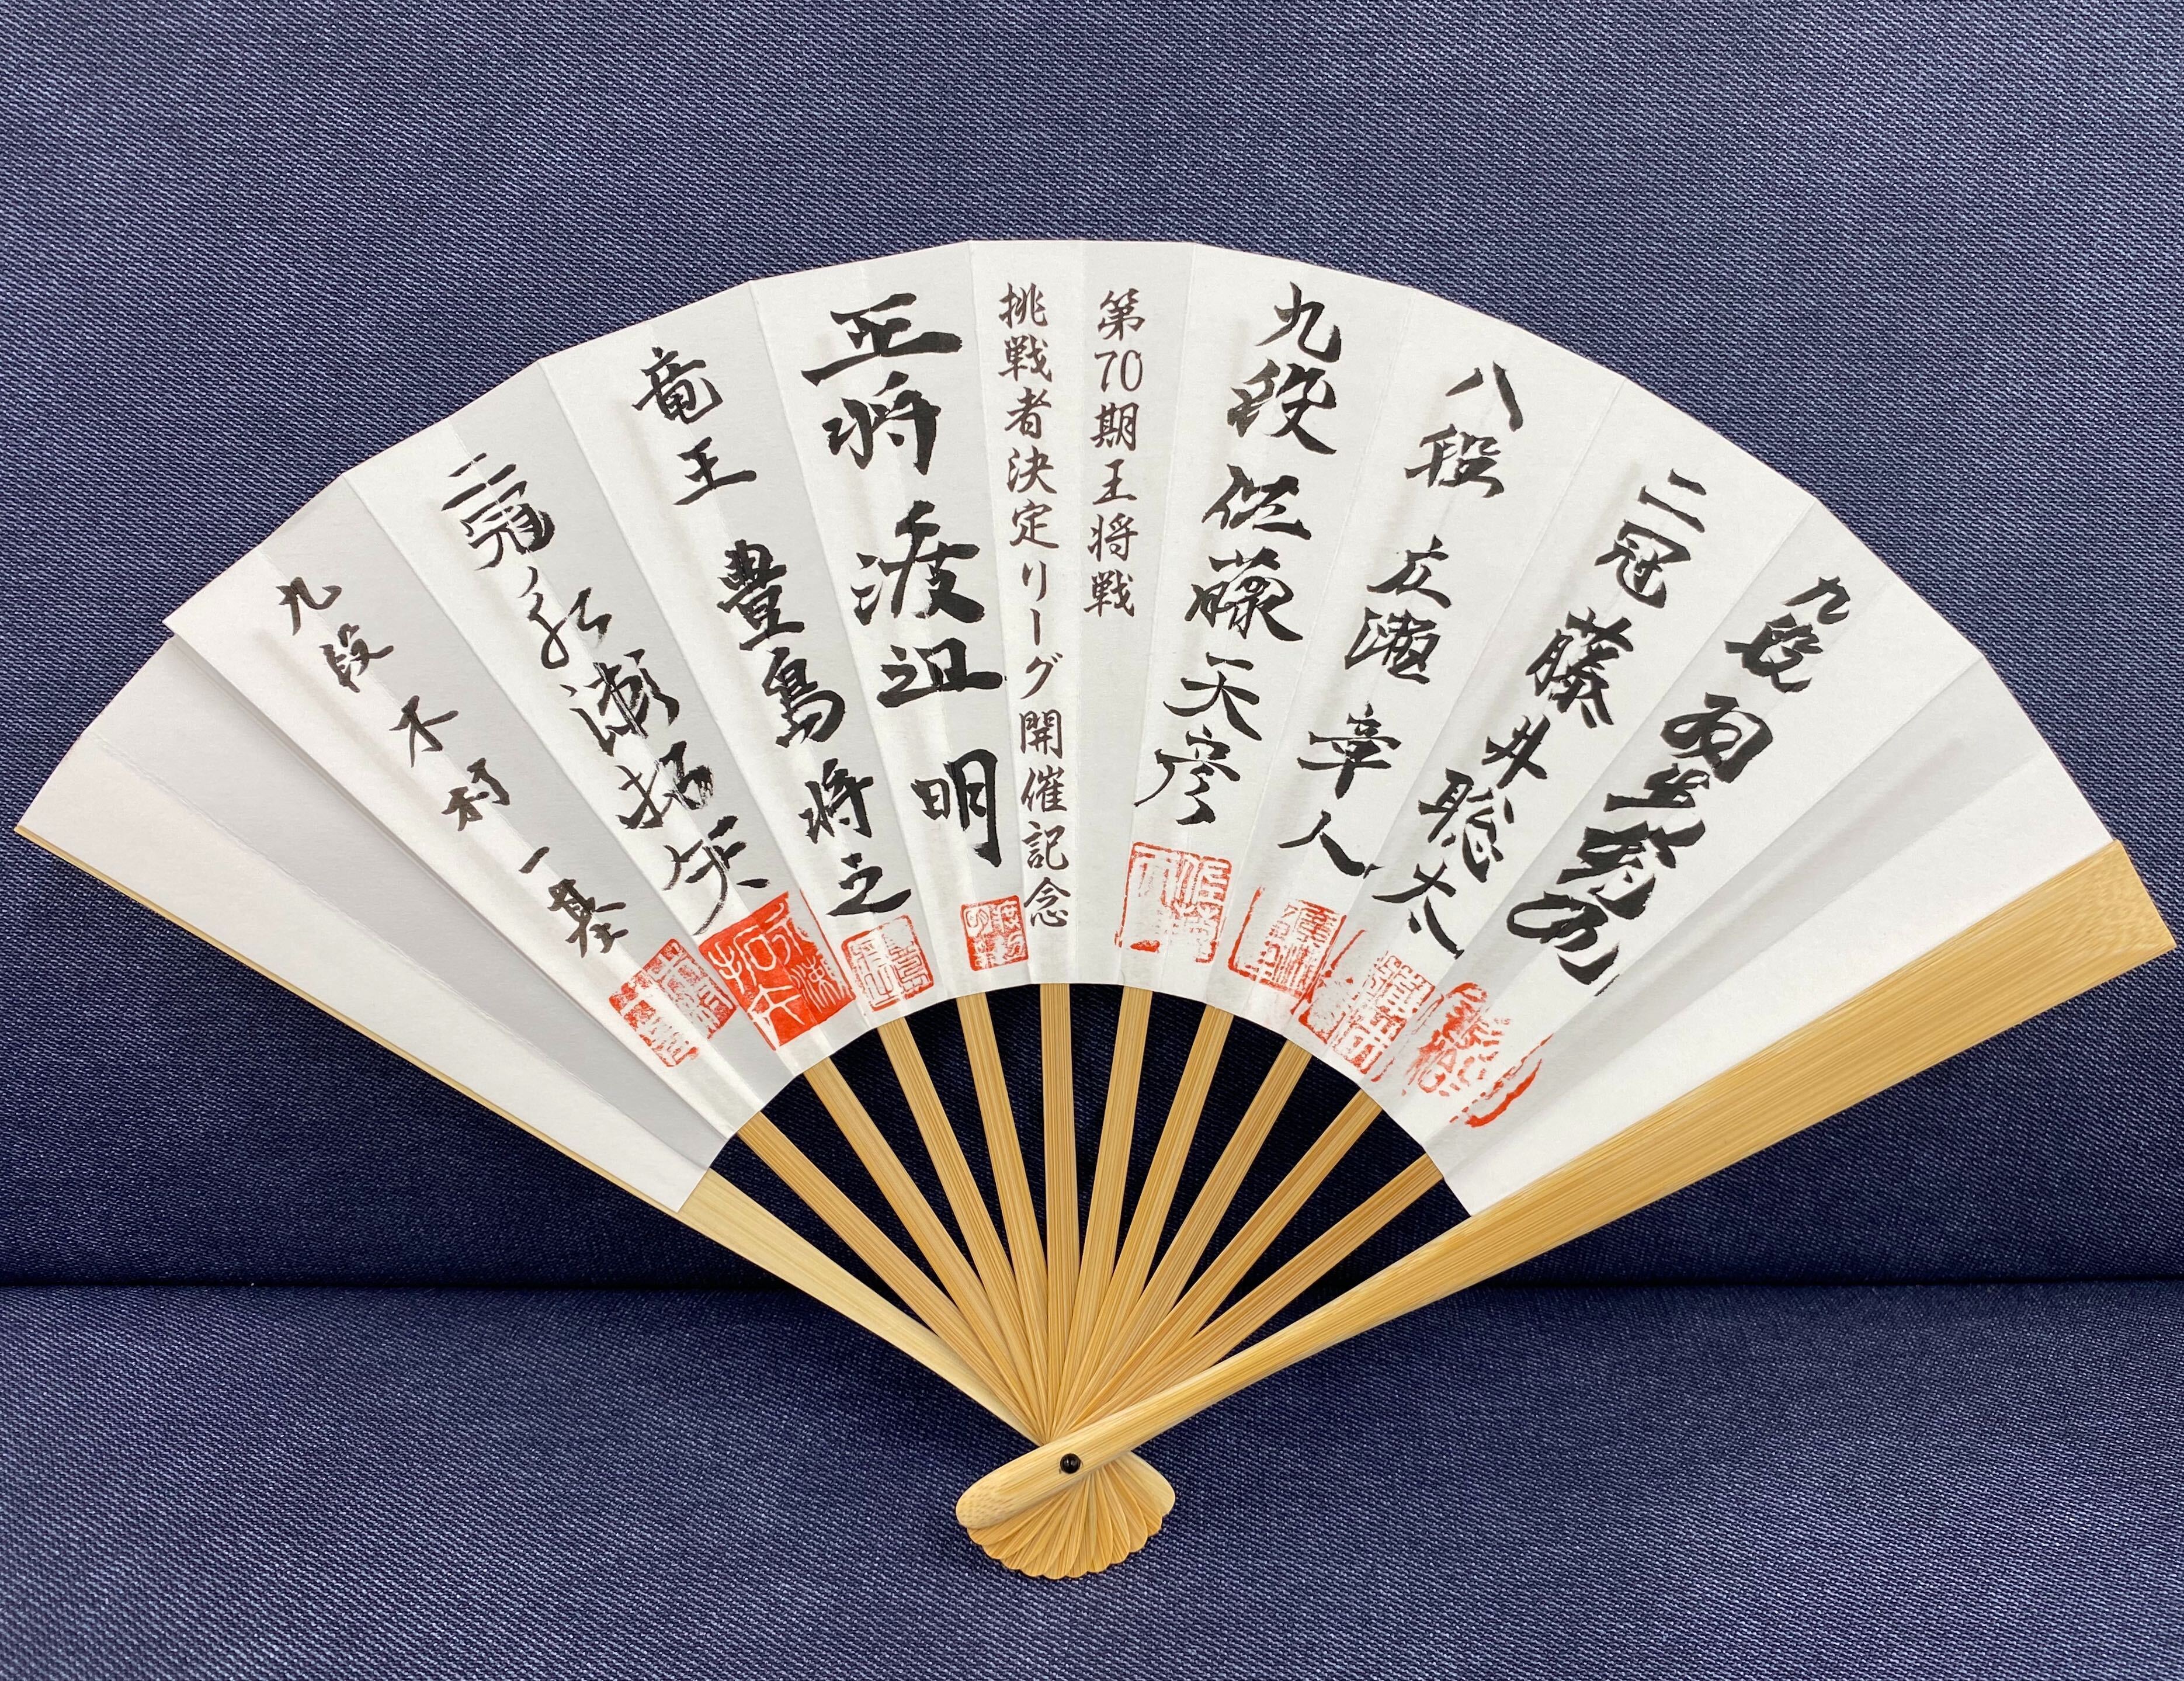 九段 羽生善治
二冠 藤井聡太
八段 広瀬章人
九段 佐藤天彦
第70期王将戦
挑戦者決定リーグ開催記念
王将 渡辺 明
竜王 豊島将之
二冠 永瀬拓矢
九段 木村一基